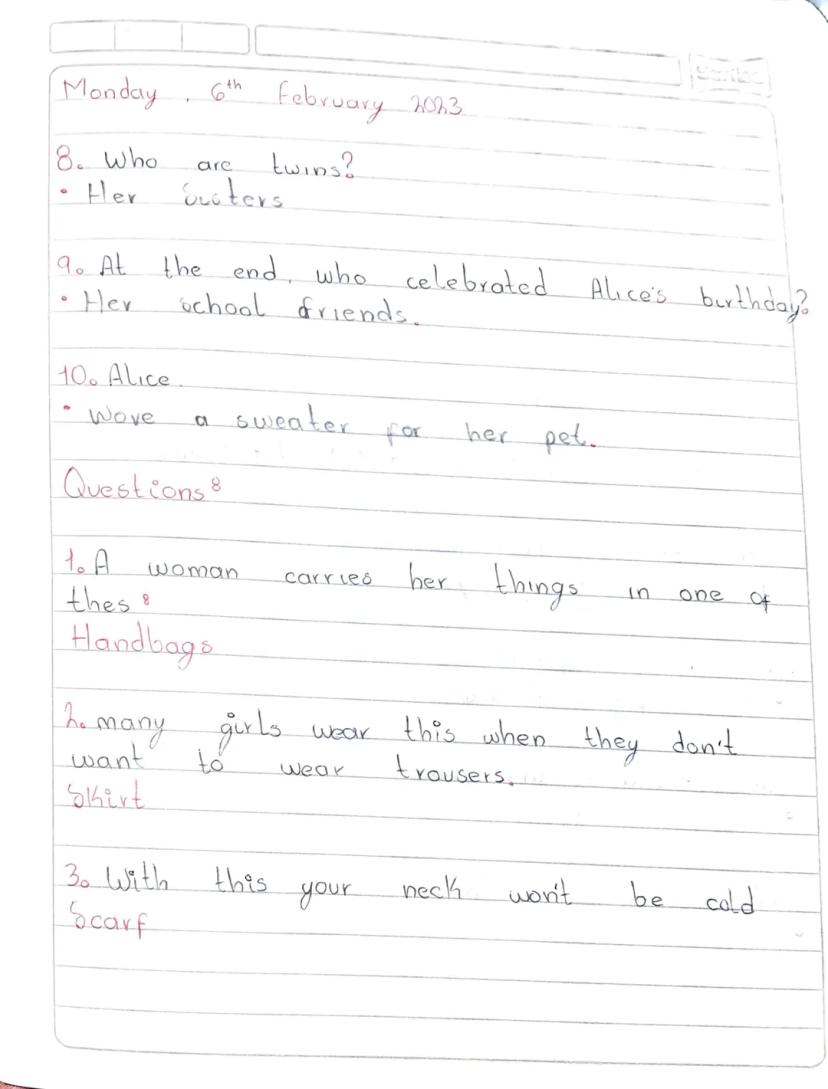 Monday, 6th February 2023
8. Who are twins?
• Her Sisters
9. At the end, who celebrated Alice's birthday?
• Her school friends.
10. Alice.
• Wove a sweater for her pet.
Questions:
1. A woman carries her things in one of
thes:
Handbags
2. many girls wear this when they don't
want to wear trousers.
Skirt
3. With this your neck won't be cold
Scarf